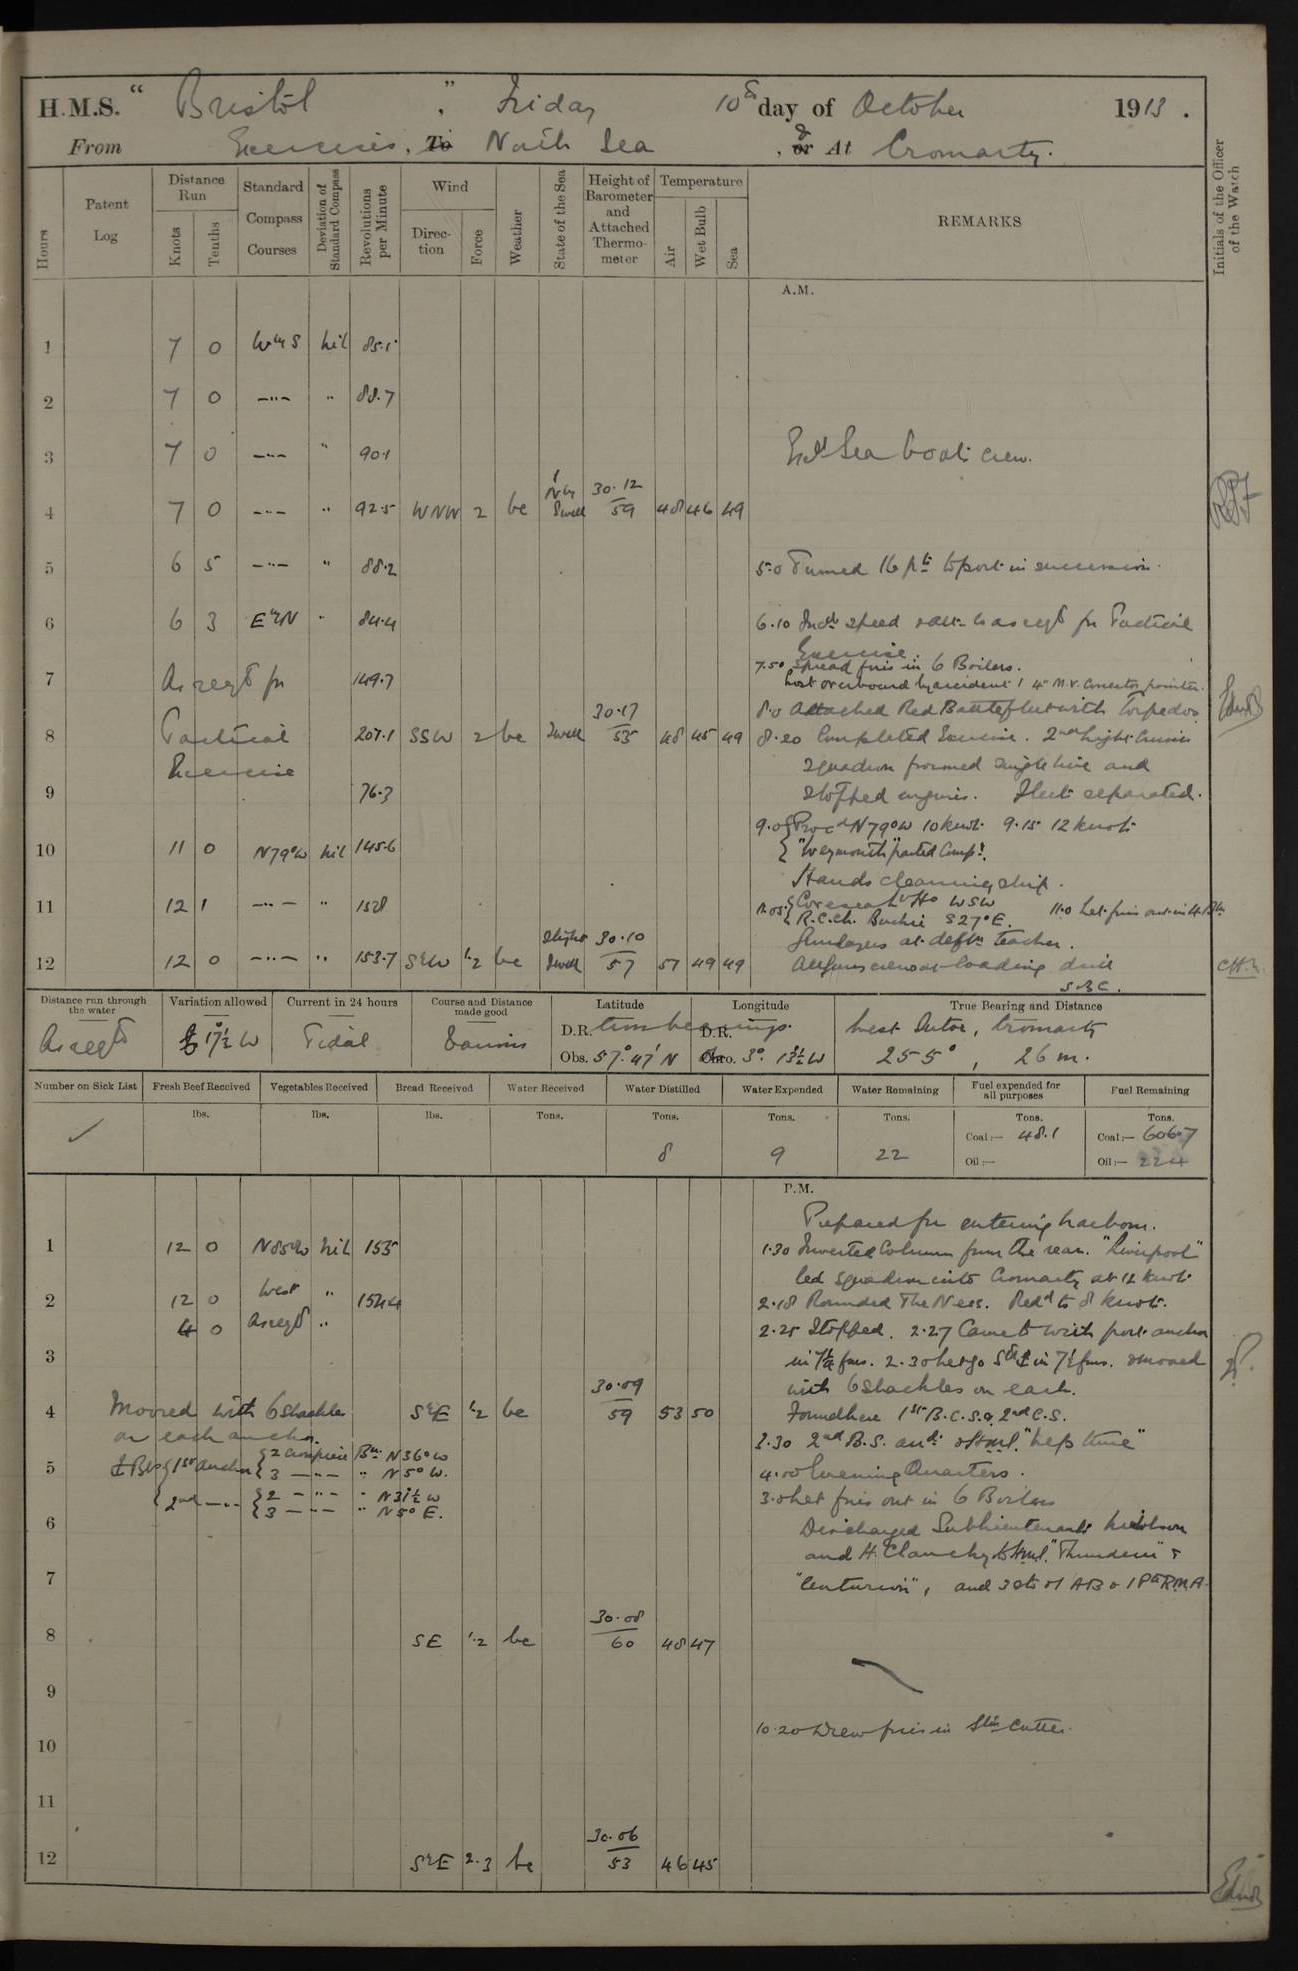 H.M.S. " Bristol " Friday 10th day of October 1913.
From Exercises, To North Sea, & or At Cromarty.
Hours
Patent Log
Distance Run
Knots
Tenths
Standard Compass Courses
Deviation of Standard Compass
Revolutions per Minute
Wind
Direction
Force
Weather
State of the Sea
Height of Barometer and Attached Thermometer
Temperature
Air
Wet Bulb
Sea
REMARKS
Initials of the Officer of the Watch
A.M.
1 7 0 WbyS nil 85.5
2 7 0 -"- " 88.7
3 7 0 -"- " 90.1 Exd Sea boats crew.
4 7 0 -"- " 92.5 WNW 2 bc Nly Swell 30.12 59 48 46 49
5 6 5 -"- " 88.2 5.0 Turned 16 pts to port in succession.
6 6 3 EbyN " 84.4 6.10 Incd speed as reqd for Tactical
Exercise.
7.50 Spread fires in 6 Boilers.
7 As reqd for 149.7 Lost overboard by accident 1 4" M.V. Corrector pointer.
8.0 Attacked Red Battlefleet with Torpedos
8 Tactical 207.1 SSW 2 bc Swell 30.17 55 48 45 49 8.20 Completed Exercise. 2nd Light Cruiser
Exercise squadron formed single line and
9 76.3 stopped engines. Fleet separated.
9.0 { Procd N79°W 10 knots 9.15 12 knots
10 11 0 N79°W nil 145.6 { "Weymouth" parted Compy.
Hands cleaning ship.
11 12 1 -"- " 152 11.05 { Covesea Lt Ho WSW
{ R.C.Ch. Buckie S27°E. 11.0 Let fires out in 4 Blrs
Gunlayers at defln teacher.
12 12 0 -"- " 153.7 SbyW 1.2 bc Slight Swell 30.10 57 57 49 49 All guns crews at loading drill
SBC.
Distance run through the water
As reqd
Variation allowed
17½ W
Current in 24 hours
Tidal
Course and Distance made good
Various
Latitude
D.R. from bearings.
Obs. 57° 47' N
Longitude
D.R.
Chro. 3° 13½ W
True Bearing and Distance
West Sutor, Cromarty
255°, 26 m.
Number on Sick List
Fresh Beef Received lbs.
Vegetables Received lbs.
Bread Received lbs.
Water Received Tons.
Water Distilled Tons. 8
Water Expended Tons. 9
Water Remaining Tons. 22
Fuel expended for all purposes Tons.
Coal:— 48.1
Oil:—
Fuel Remaining Tons.
Coal:— 606.7
Oil:— 224
P.M.
Prepared for entering harbour.
1 12 0 N85°W nil 155 1.30 Inverted Column from the rear. "Liverpool"
led squadron into Cromarty at 12 knots
2 12 0 West " 154.4 2.18 Rounded The Ness. Redd to 8 knots.
4 0 As reqd " 2.25 Stopped. 2.27 Came to with port anchor
3 in 7¼ fms. 2.30 let go in 7½ fms. Moored
with 6 Shackles on each.
4 Moored with 6 Shackles SbyE 1.2 bc 30.09 59 53 50 Found here 1st B.C.S. & 2nd C.S.
on each anchor. 3.30 2nd B.S. and H.M.S. "Neptune"
5 1st anchor { 2 compass Bg N36°W 4.00 Evening Quarters.
{ 3 -"- " N5°W.
2nd -"- { 2 -"- " N31½W 3.0 Let fires out in 6 Boilers
{ 3 -"- " N5°E.
6 Discharged Sublieutenants
and H. Clanchy to H.M.S. "Thunderer" &
7 "Centurion", and 3 AB & 1 Pte RMA.
8 SE 1.2 bc 30.08 60 48 47
9
10 10.20 Drew fires in Stm Cutter.
11
12 SbyE 2.3 bc 30.06 53 46 45